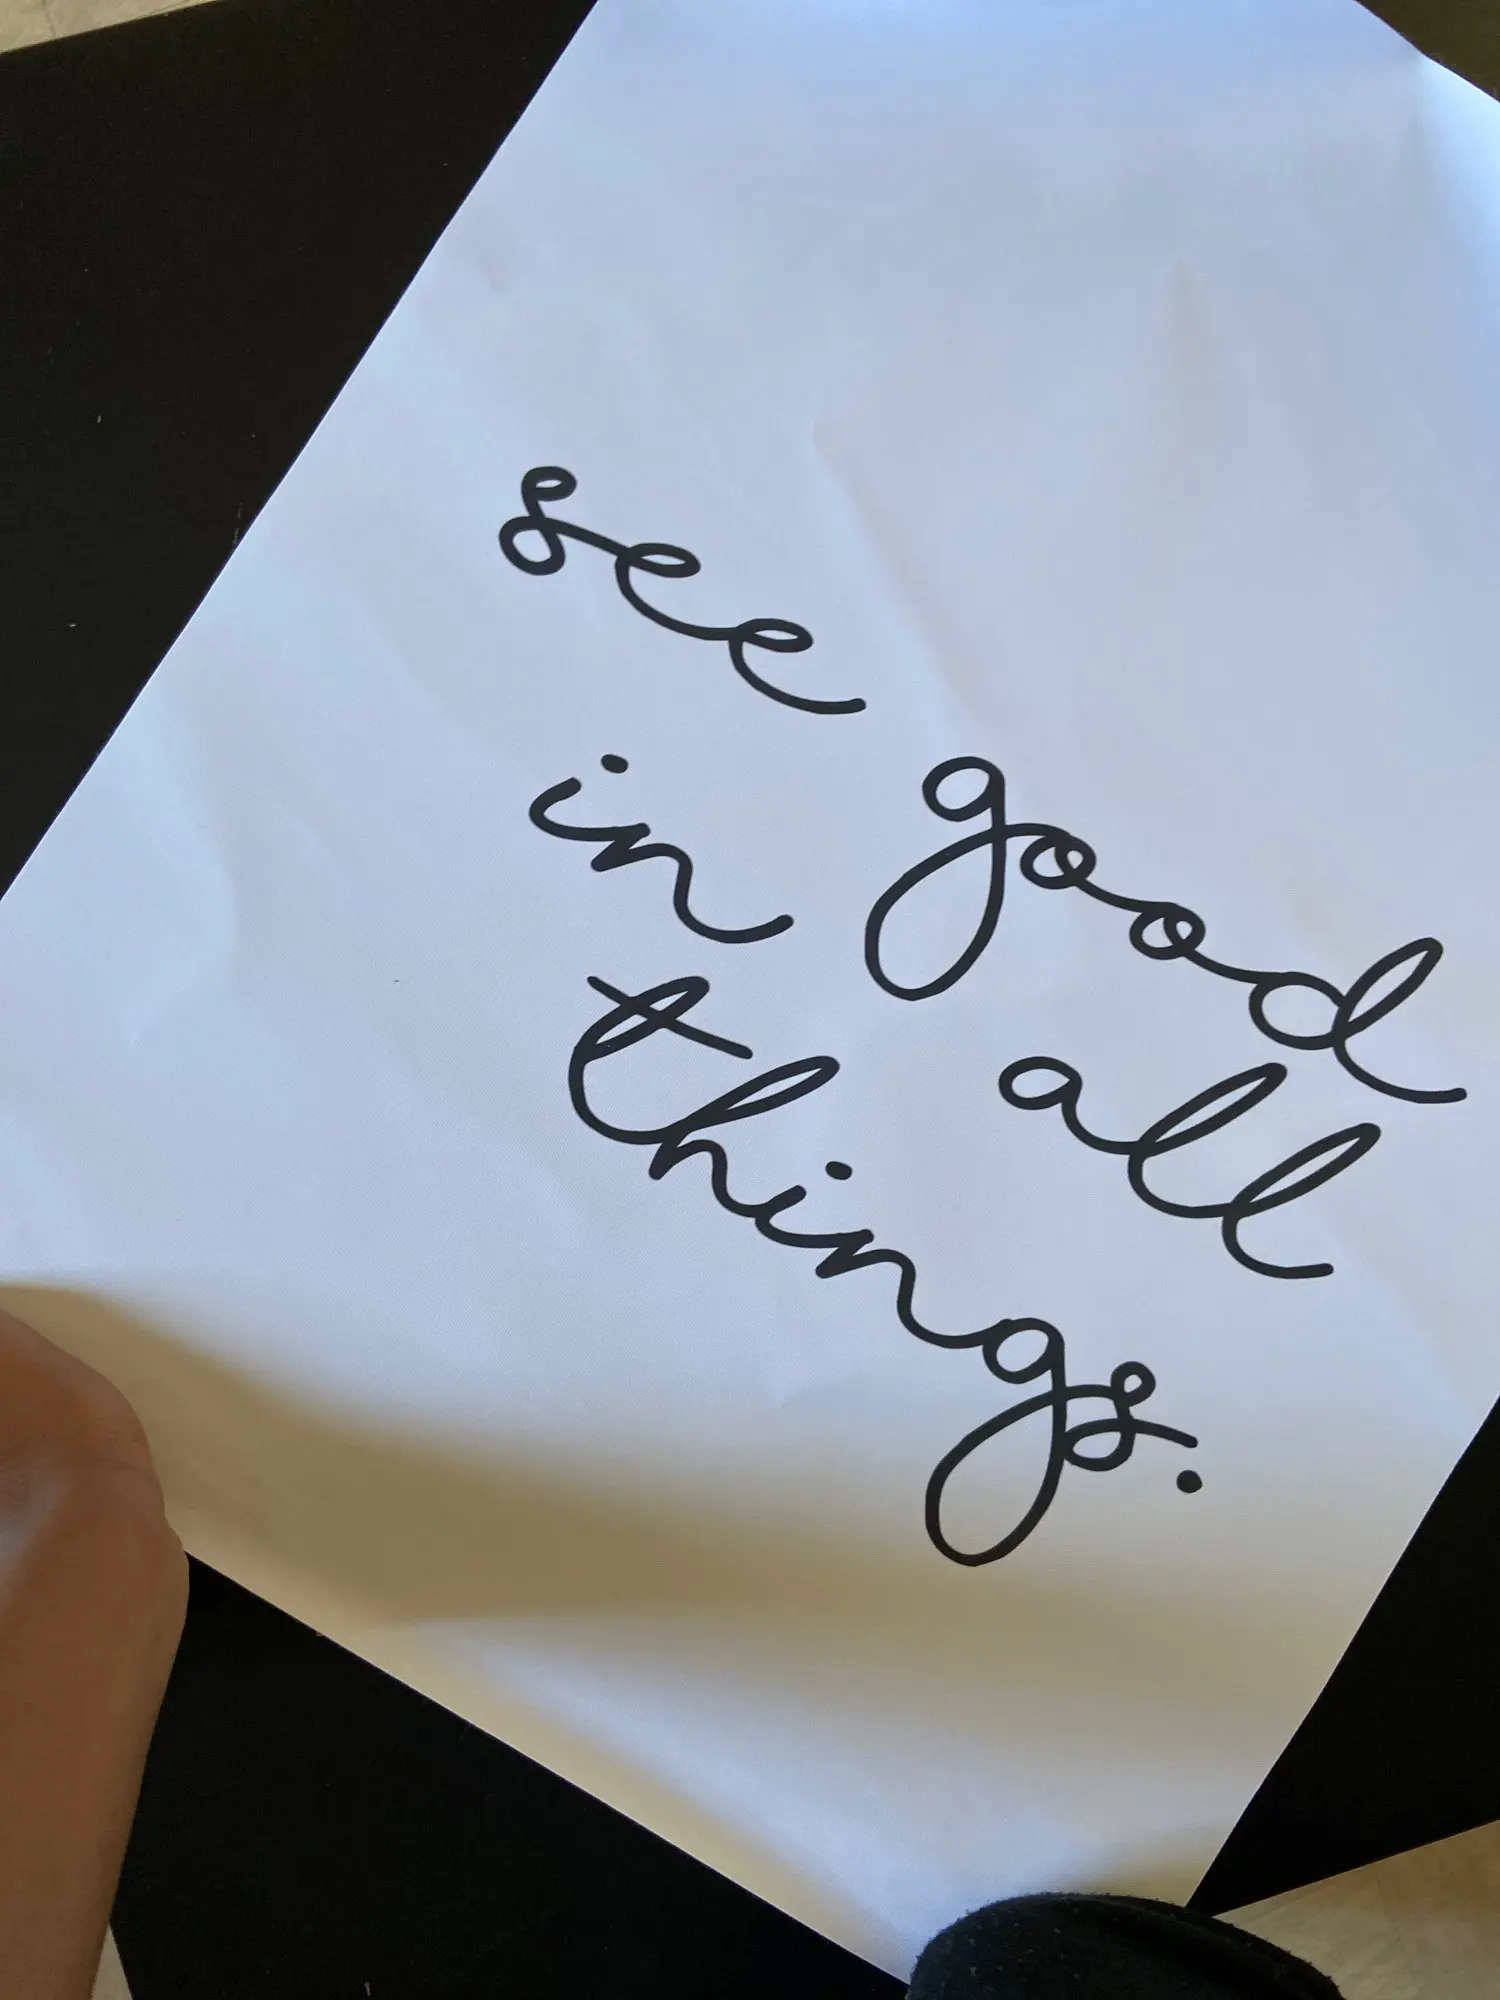 see good
in all
things.